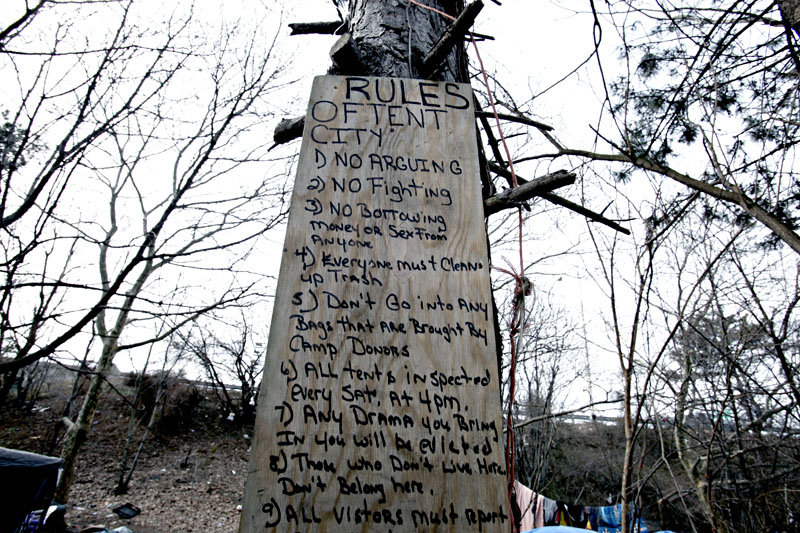 RULES
OF TENT
CITY:
1) NO ARGUING
2) NO Fighting
3) NO Borrowing
money or Sex From
Anyone
4) Everyone must Clean
up Trash
5) Don't Go into Any
Bags that are Brought By
Camp Donors
6) ALL tents inspected
every Sat. At 4pm.
7) Any Drama you Bring
In you will be evicted
8) Those who Don't Live Here
Don't Belong here.
9) ALL Vistors must report